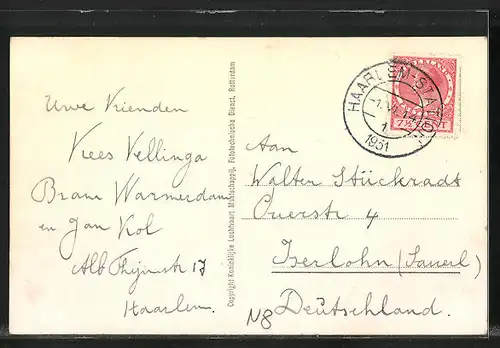 Uwe Vrienden
Kees Vellinga
Bram Warmerdam
en Jan Kol
Alb Thijmstr 17
Haarlem.
Copyright Koninklijke Luchtvaart Maatschappij, Fototechnische Dienst, Rotterdam
HAARLEM-STATION
1931
7½
Aan
Walter Stückradt
Querstr 4
Iserlohn (Sauerl)
Deutschland.
N8